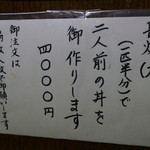 長焼は
(一匹半分)で
二人前の丼を
御作りします
四〇〇〇円
御注文は